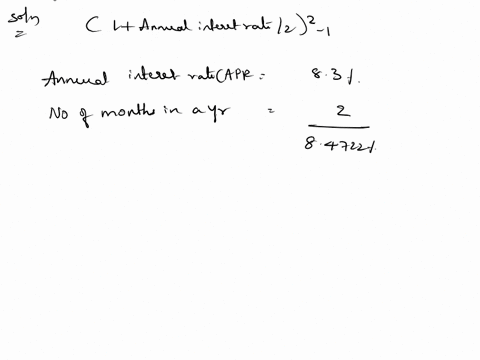 Soln
=
( 1+ Annual interest rate /2 )² -1
Annual interest rate CAPR = 8.3%
No of months in a yr = 2
8.4722%